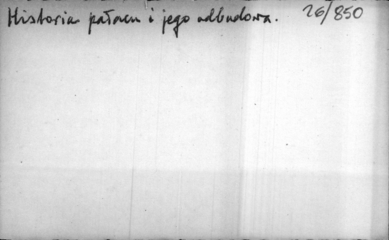 Historia pałacu i jego odbudowa. 26/850